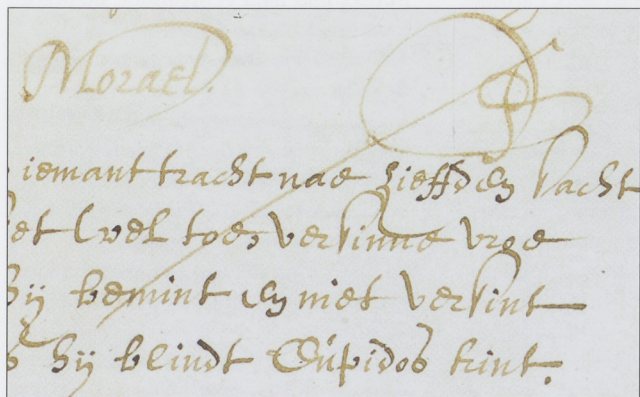 Morael.
iemant tracht nae Lieffd en sacht
et wel toe, versinne vroe
hij bemint en niet versint
s hij blindt Cúpidos kint.